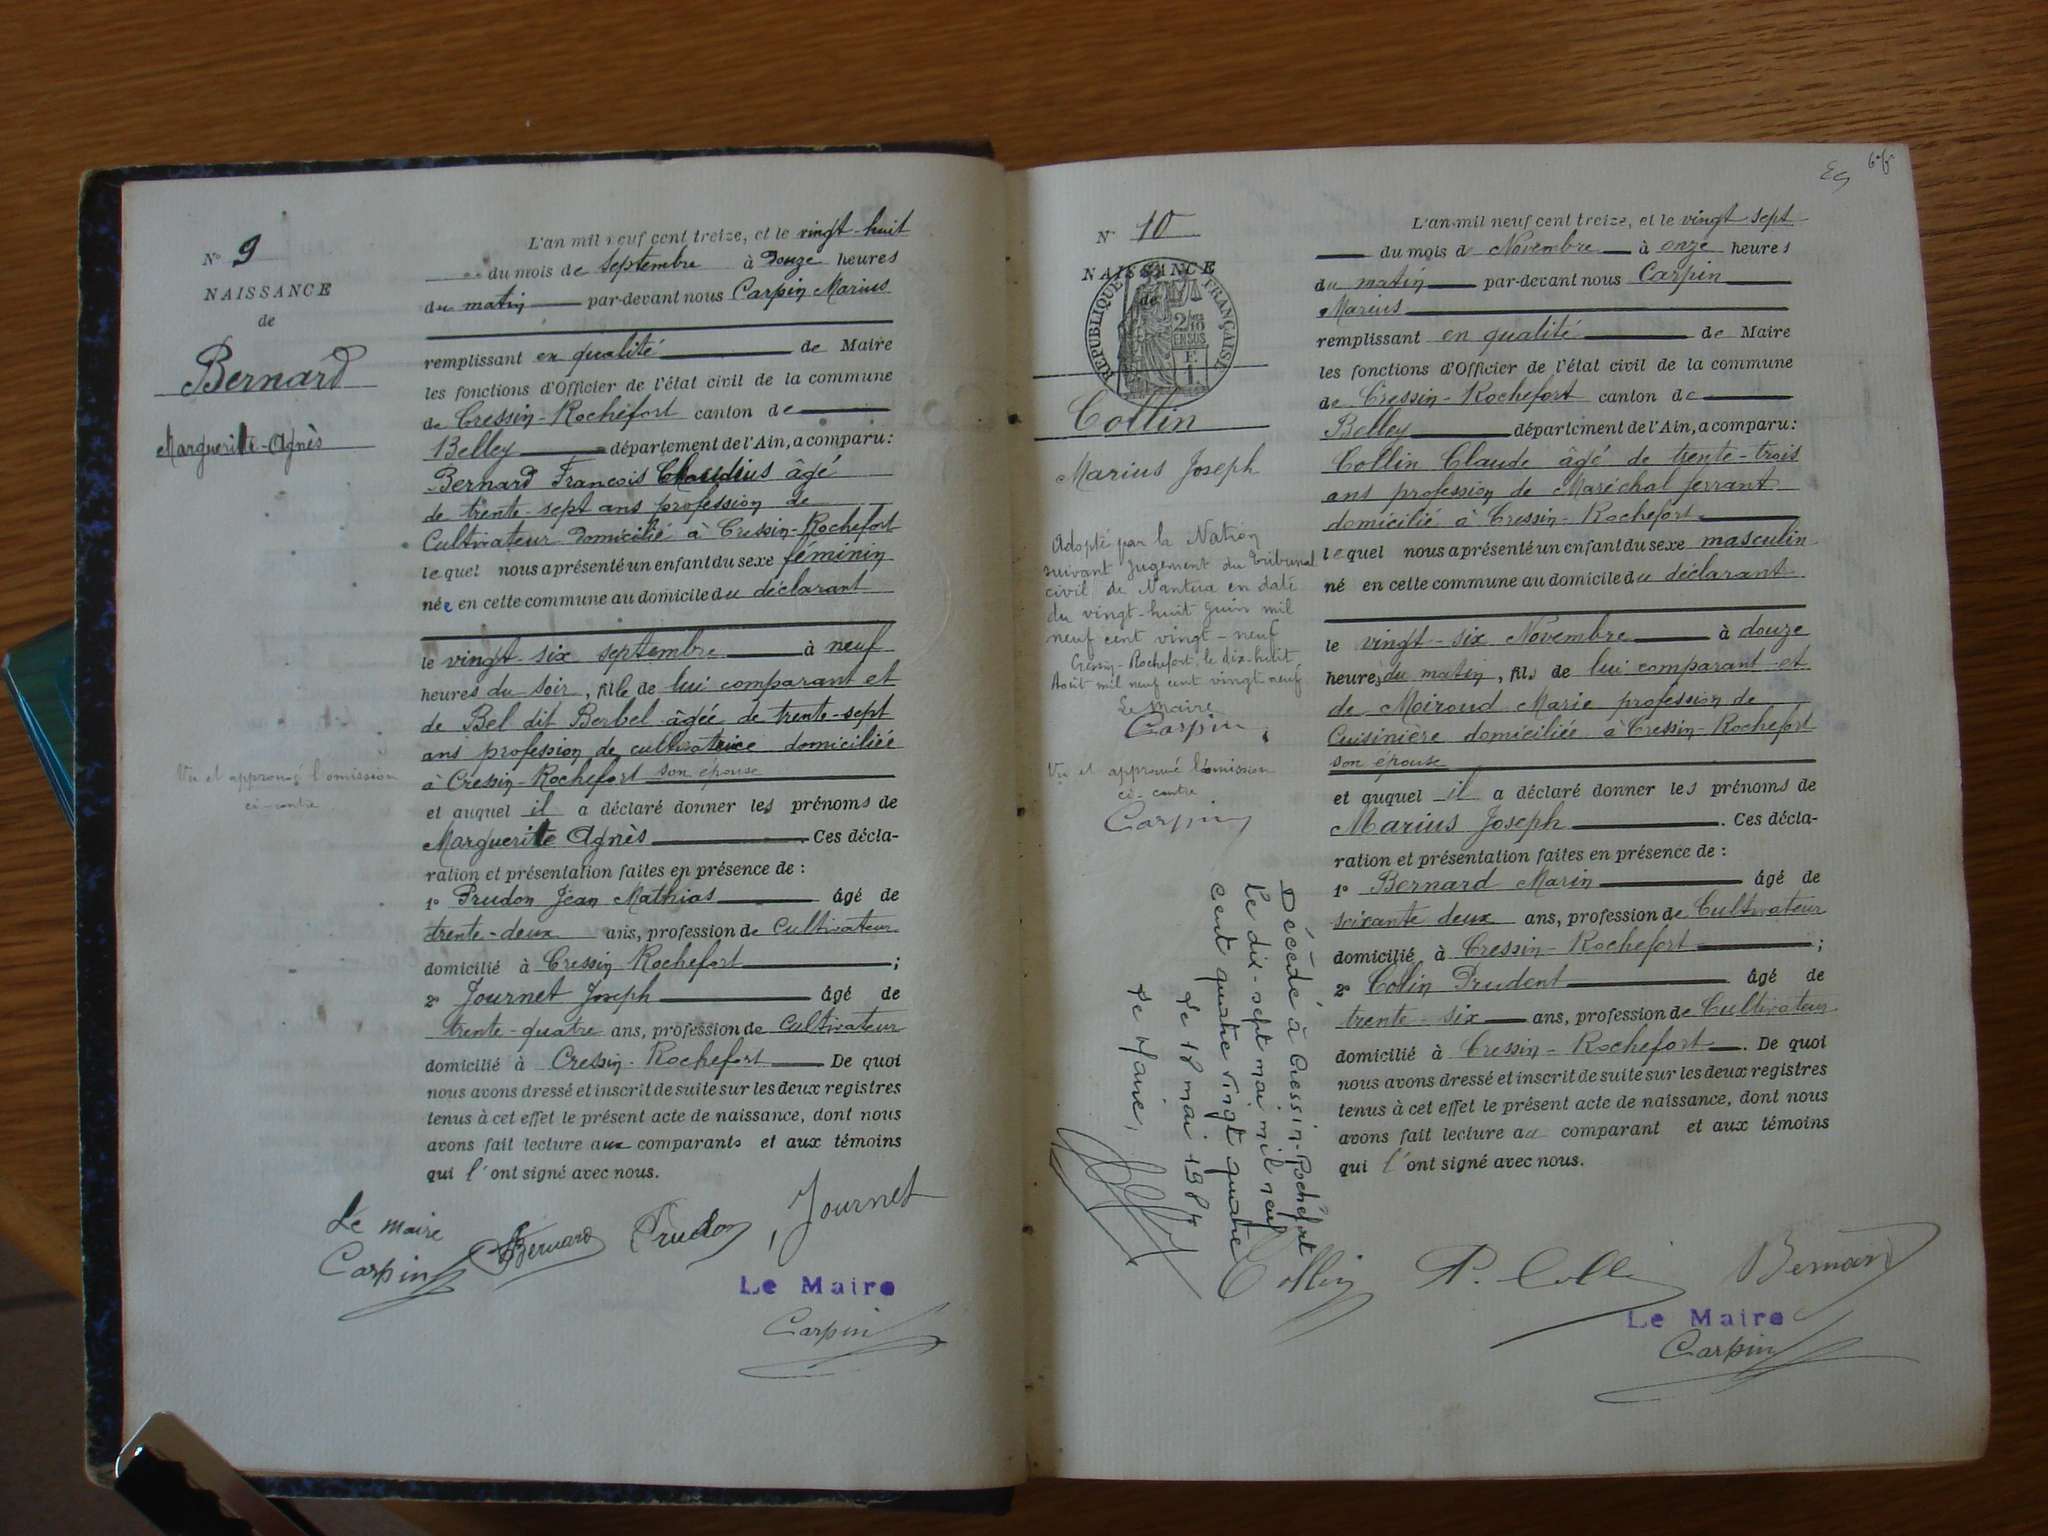 N° 9
NAISSANCE
de
Bernard
Marguerite-Agnès
Vu et approuvé l'omission
ci-contre
L'an mil neuf cent treize, et le vingt-huit
du mois de septembre à douze heures
du matin par-devant nous Carpin Marius
remplissant en qualité de Maire
les fonctions d'Officier de l'état civil de la commune
de Cressin-Rochefort canton de
Belley département de l'Ain, a comparu:
Bernard François Claudius âgé
de trente-sept ans profession de
Cultivateur domicilié à Cressin-Rochefort
lequel nous a présenté un enfant du sexe féminin
née en cette commune au domicile du déclarant
le vingt-six septembre à neuf
heures du soir, fille de lui comparant et
de Bel dit Berbel âgée de trente-sept
ans profession de cultivatrice domiciliée
à Cressin-Rochefort son épouse
et auquel il a déclaré donner les prénoms de
Marguerite Agnès Ces décla-
ration et présentation faites en présence de :
1° Prudon Jean Mathias âgé de
trente-deux ans, profession de Cultivateur
domicilié à Cressin Rochefort ;
2° Journet Joseph âgé de
trente-quatre ans, profession de Cultivateur
domicilié à Cressin-Rochefort De quoi
nous avons dressé et inscrit de suite sur les deux registres
tenus à cet effet le présent acte de naissance, dont nous
avons fait lecture aux comparants et aux témoins
qui l'ont signé avec nous.
Le maire
Carpin Bernard Prudon Journet
Le Maire
Carpin
N° 10
NAISSANCE
de
RÉPUBLIQUE FRANÇAISE
2/10
EN SUS
F.
1.
Collin
Marius Joseph
Adopté par la Nation
suivant jugement du Tribunal
civil de Nantua en date
du vingt-huit Juin mil
neuf cent vingt-neuf
Cressin-Rochefort, le dix-huit
Août mil neuf cent vingt neuf
Le Maire
Carpin
Vu et approuvé l'omission
ci-contre
Carpin
Décédé à Cressin-Rochefort
le dix-sept mai mil neuf
cent quatre vingt quatre
Le 18 mai 1984
Le Maire,
L'an mil neuf cent treize, et le vingt sept
du mois de Novembre à onze heures
du matin par-devant nous Carpin
Marius
remplissant en qualité de Maire
les fonctions d'Officier de l'état civil de la commune
de Cressin-Rochefort canton de
Belley département de l'Ain, a comparu:
Collin Claude âgé de trente-trois
ans profession de Maréchal ferrant
domicilié à Cressin-Rochefort
lequel nous a présenté un enfant du sexe masculin
né en cette commune au domicile du déclarant
le vingt-six Novembre à douze
heures du matin, fils de lui comparant et
de Moiroud Marie profession de
Cuisinière domiciliée à Cressin-Rochefort
son épouse
et auquel il a déclaré donner les prénoms de
Marius Joseph . Ces décla-
ration et présentation faites en présence de :
1° Bernard Marin âgé de
soixante deux ans, profession de Cultivateur
domicilié à Cressin-Rochefort ;
2° Colin Prudent âgé de
trente-six ans, profession de Cultivateur
domicilié à Cressin-Rochefort . De quoi
nous avons dressé et inscrit de suite sur les deux registres
tenus à cet effet le présent acte de naissance, dont nous
avons fait lecture au comparant et aux témoins
qui l'ont signé avec nous.
Collin P. Colli Bernard
Le Maire
Carpin